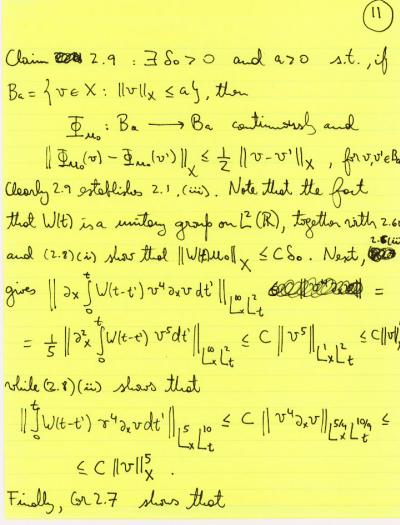 11
Claim 2.9 : ∃ δ₀ > 0 and a > 0 s.t., if
Ba = { v ∈ X : ‖v‖_X ≤ a }, then
Φ_{u₀} : Ba ⟶ Ba continuously and
‖ Φ_{u₀}(v) − Φ_{u₀}(v') ‖_X ≤ 1/2 ‖ v − v' ‖_X , for v, v' ∈ Ba
Clearly 2.9 establishes 2.1, (iii). Note that the fact
that W(t) is a unitary group on L²(ℝ), together with 2.6
and (2.8)(i) show that ‖W(t)u₀‖_X ≤ C δ₀. Next, 2.8(ii)
gives ‖ ∂_x ∫₀ᵗ W(t−t') v⁴ ∂_x v dt' ‖_{L^∞_x L²_t} =
= 1/5 ‖ ∂²_x ∫₀ᵗ W(t−t') v⁵ dt' ‖_{L^∞_x L²_t} ≤ C ‖ v⁵ ‖_{L¹_x L²_t} ≤ C‖v‖
while (2.8)(iii) shows that
‖ ∫₀ᵗ W(t−t') v⁴ ∂_x v dt' ‖_{L⁵_x L¹⁰_t} ≤ C ‖ v⁴ ∂_x v ‖_{L^{5/4}_x L^{10/9}_t} ≤
≤ C ‖ v ‖⁵_X .
Finally, Cor 2.7 shows that